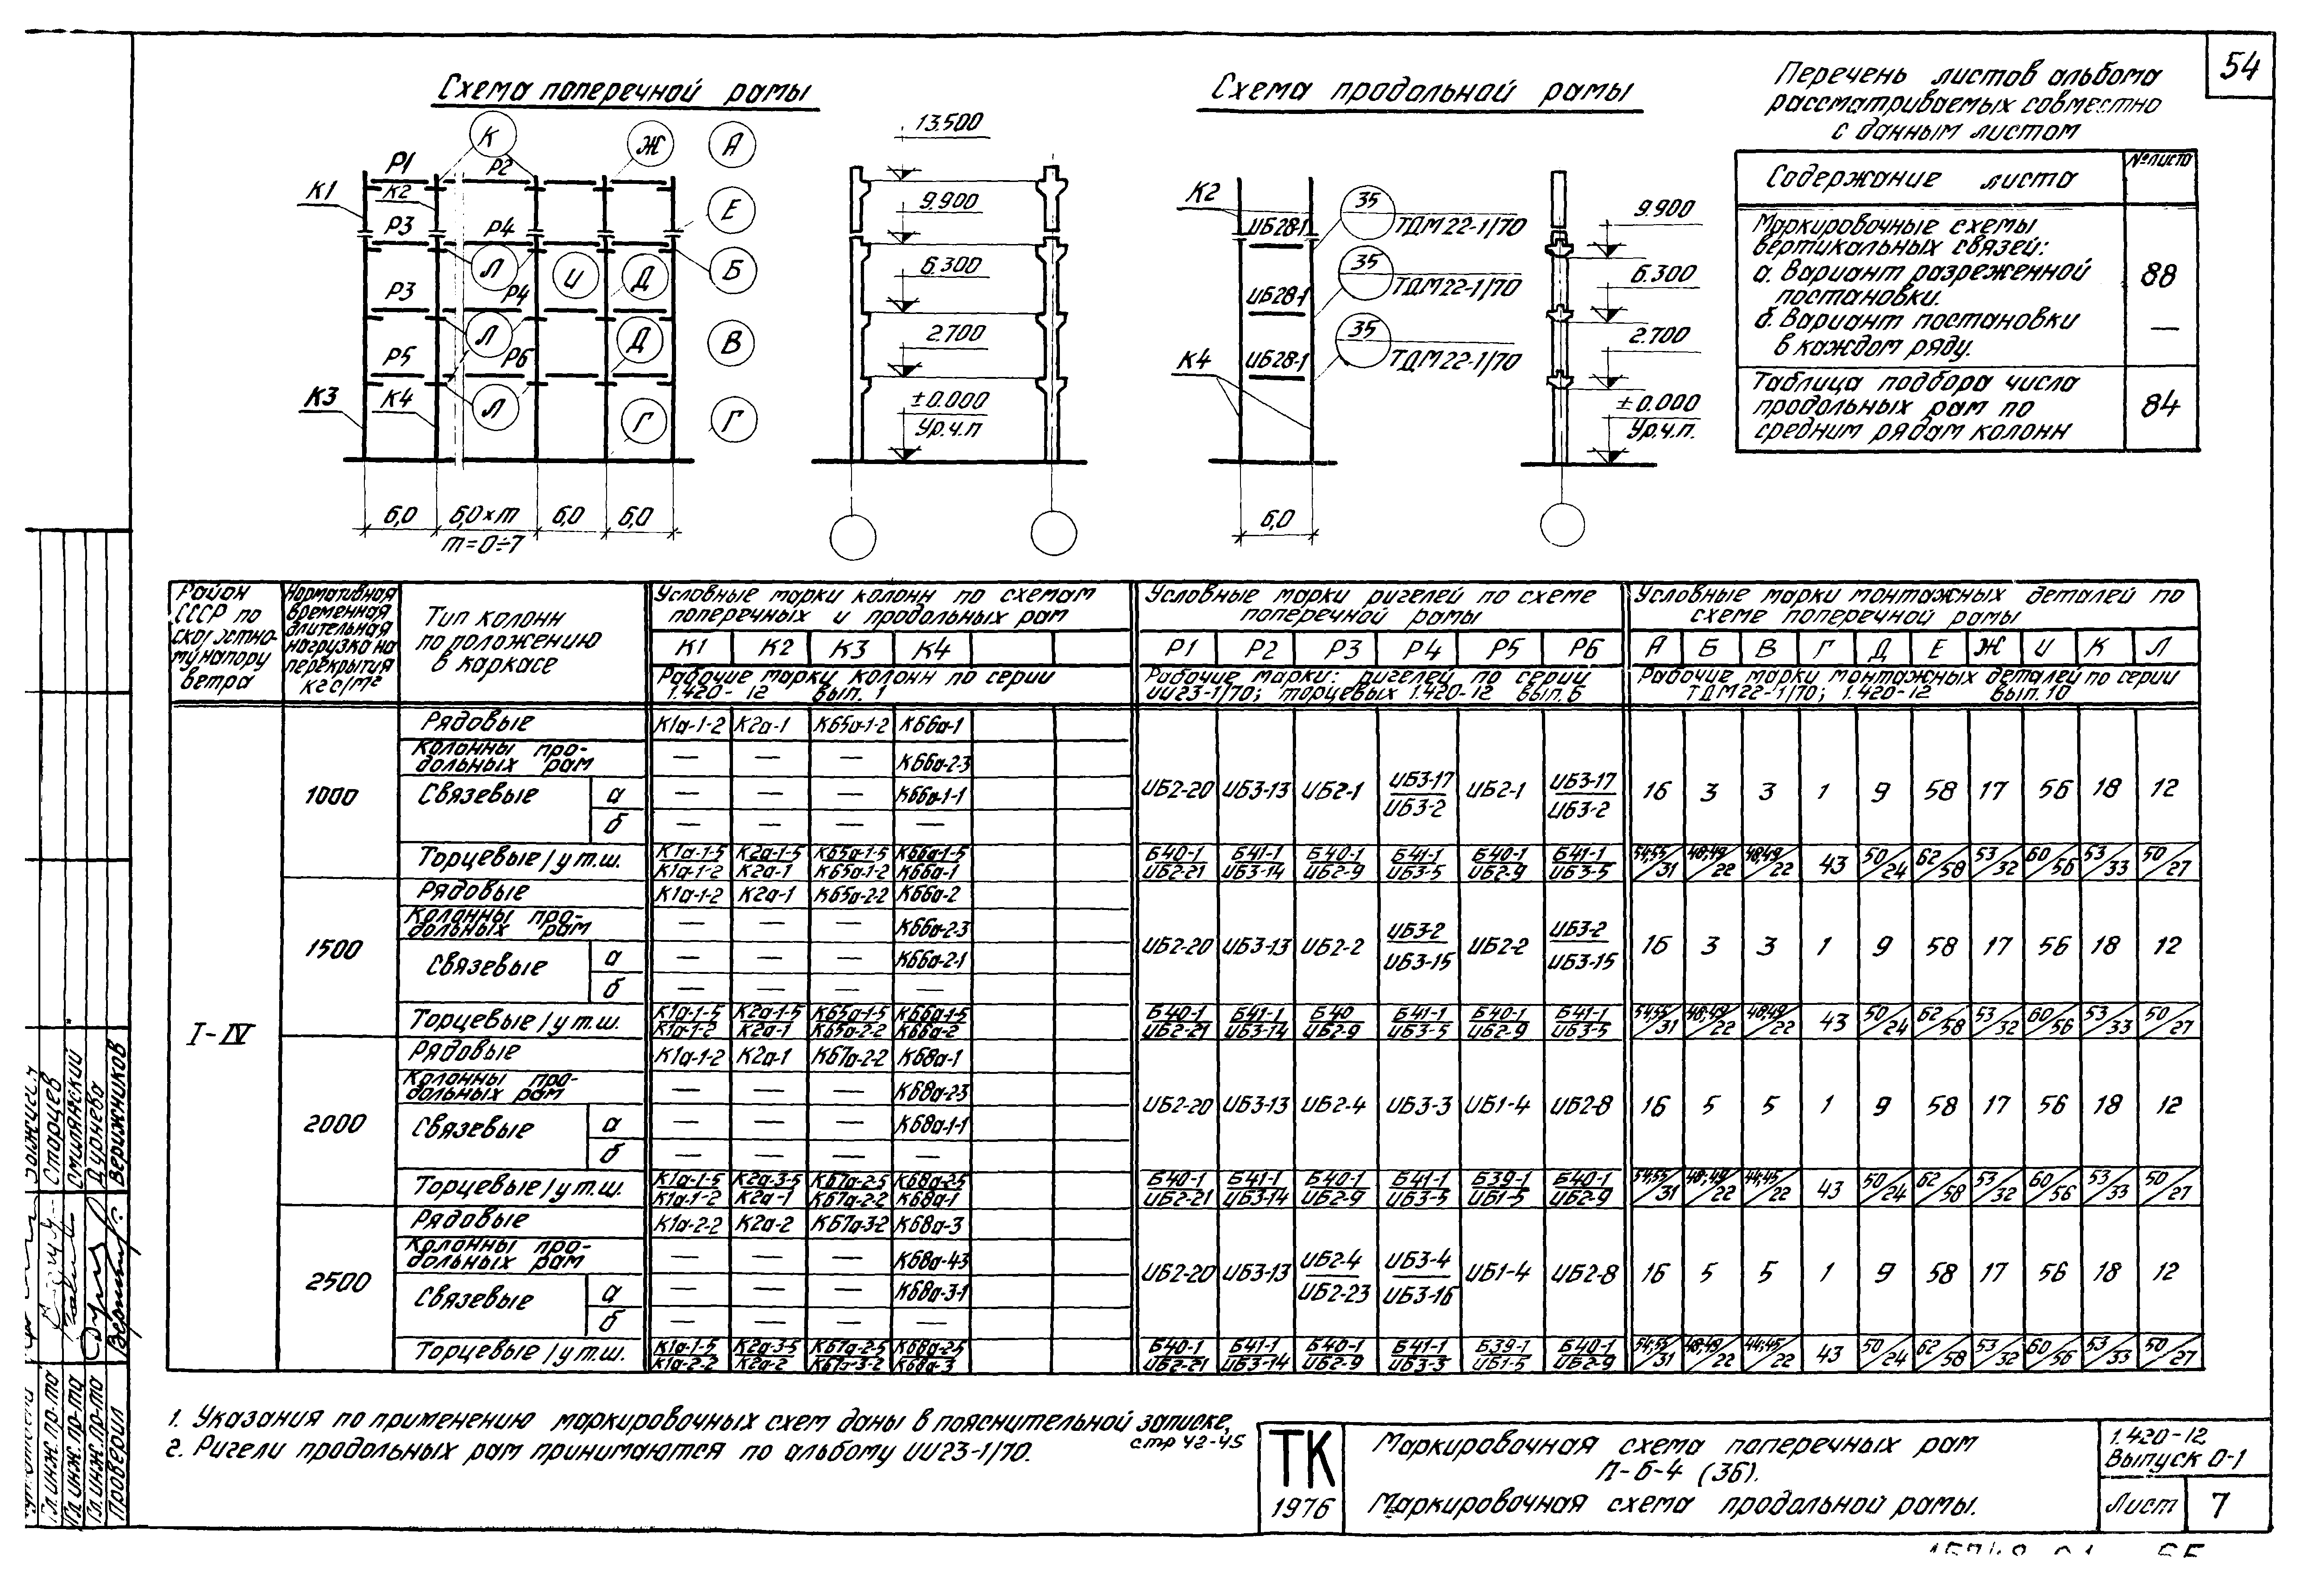 54
Схема поперечной рамы
К
Ж
А
Р1
Р2
К1
К2
Е
Р3
Р4
Л
И
Д
Б
Р3
Р4
Л
Д
В
Р5
Р6
К3
К4
Л
Г
Г
6,0
6,0×m
6,0
6,0
m=0÷7
13.500
9.900
6.300
2.700
±0.000
Ур.ч.п
Схема продольной рамы
К2
ИБ28-1
35
ТДМ22-1/70
ИБ28-1
35
ТДМ22-1/70
К4
ИБ28-1
35
ТДМ22-1/70
6,0
9.900
6.300
2.700
±0.000
Ур.ч.п.
Перечень листов альбома
рассматриваемых совместно
с данным листом
Содержание листа
№ листа
Маркировочные схемы
вертикальных связей:
а. Вариант разреженной
постановки.
88
б. Вариант постановки
в каждом ряду.
—
Таблица подбора числа
продольных рам по
средним рядам колонн
84
Район
СССР по
скоростно-
му напору
ветра
Нормативная
временная
длительная
нагрузка на
перекрытия
кгс/м²
Тип колонн
по положению
в каркасе
Условные марки колонн по схемам
поперечных и продольных рам
К1 К2 К3 К4
Рабочие марки колонн по серии
1.420-12 вып. 1
Условные марки ригелей по схеме
поперечной рамы
Р1 Р2 Р3 Р4 Р5 Р6
Рабочие марки: ригелей по серии
ИИ23-1/70; торцевых 1.420-12 вып.6
Условные марки монтажных деталей по
схеме поперечной рамы
А Б В Г Д Е Ж И К Л
Рабочие марки монтажных деталей по серии
ТДМ22-1/70; 1.420-12 вып.10
I-IV
1000
Рядовые К1а-1-2 К2а-1 К65а-1-2 К66а-1
Колонны про-
дольных рам — — — К66а-2-3
Связевые а — — — К66а-1-1
б — — — —
ИБ2-20 ИБ3-13 ИБ2-1 ИБ3-17/ИБ3-2 ИБ2-1 ИБ3-17/ИБ3-2 16 3 3 1 9 58 17 56 18 12
Торцевые/у т.ш. К1а-1-5/К1а-1-2 К2а-1-5/К2а-1 К65а-1-5/К65а-1-2 К66а-1-5/К66а-1 Б40-1/ИБ2-21 Б41-1/ИБ3-14 Б40-1/ИБ2-9 Б41-1/ИБ3-5 Б40-1/ИБ2-9 Б41-1/ИБ3-5 54;55/31 48;49/22 48;49/22 43 50/24 62/58 53/32 60/56 53/33 50/27
1500
Рядовые К1а-1-2 К2а-1 К65а-2-2 К66а-2
Колонны про-
дольных рам — — — К66а-2-3
Связевые а — — — К66а-2-1
б — — — —
ИБ2-20 ИБ3-13 ИБ2-2 ИБ3-2/ИБ3-15 ИБ2-2 ИБ3-2/ИБ3-15 16 3 3 1 9 58 17 56 18 12
Торцевые/у т.ш. К1а-1-5/К1а-1-2 К2а-1-5/К2а-1 К65а-1-5/К65а-2-2 К66а-1-5/К66а-2 Б40-1/ИБ2-21 Б41-1/ИБ3-14 Б40/ИБ2-9 Б41-1/ИБ3-5 Б40-1/ИБ2-9 Б41-1/ИБ3-5 54;55/31 48;49/22 48;49/22 43 50/24 62/58 53/32 60/56 53/33 50/27
2000
Рядовые К1а-1-2 К2а-1 К67а-2-2 К68а-1
Колонны про-
дольных рам — — — К68а-2-3
Связевые а — — — К68а-1-1
б — — — —
ИБ2-20 ИБ3-13 ИБ2-4 ИБ3-3 ИБ1-4 ИБ2-8 16 5 5 1 9 58 17 56 18 12
Торцевые/у т.ш. К1а-1-5/К1а-1-2 К2а-3-5/К2а-1 К67а-2-5/К67а-2-2 К68а-2-5/К68а-1 Б40-1/ИБ2-21 Б41-1/ИБ3-14 Б40-1/ИБ2-9 Б41-1/ИБ3-5 Б39-1/ИБ1-5 Б40-1/ИБ2-9 54;55/31 48;49/22 44;45/22 43 50/24 62/58 53/32 60/56 53/33 50/27
2500
Рядовые К1а-2-2 К2а-2 К67а-3-2 К68а-3
Колонны про-
дольных рам — — — К68а-4-3
Связевые а — — — К68а-3-1
б — — — —
ИБ2-20 ИБ3-13 ИБ2-4/ИБ2-23 ИБ3-4/ИБ3-16 ИБ1-4 ИБ2-8 16 5 5 1 9 58 17 56 18 12
Торцевые/у т.ш. К1а-1-5/К1а-2-2 К2а-3-5/К2а-2 К67а-2-5/К67а-3-2 К68а-2-5/К68а-3 Б40-1/ИБ2-21 Б41-1/ИБ3-14 Б40-1/ИБ2-9 Б41-1/ИБ3-3 Б39-1/ИБ1-5 Б40-1/ИБ2-9 54;55/31 48;49/22 44;45/22 43 50/24 62/58 53/32 60/56 53/33 50/27
1. Указания по применению маркировочных схем даны в пояснительной записке,
стр 42-45
2. Ригели продольных рам принимаются по альбому ИИ23-1/70.
ТК
1976
Маркировочная схема поперечных рам
П-6-4 (36).
Маркировочная схема продольной рамы.
1.420-12
Выпуск 0-1
Лист 7
Гл.инж.пр-та Старцев
Гл.инж.пр-та Смилянский
Гл.инж.пр-та Дурнева
Проверил Верижников